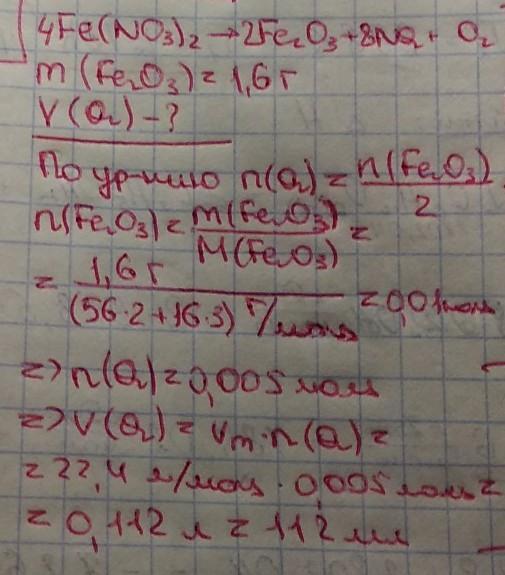 4Fe(NO₃)₂→2Fe₂O₃+8NO₂+ O₂
m(Fe₂O₃)=1,6 г
V(O₂)-?
По ур-нию n(O₂)=n(Fe₂O₃)/2
n(Fe₂O₃)=m(Fe₂O₃)/M(Fe₂O₃)=
=1,6 г/(56·2+16·3) г/моль=0,01моль
=> n(O₂)=0,005 моль
=> V(O₂)=Vm·n(O₂)=
=22,4 л/моль·0,005 моль=
=0,112 л=112 мл